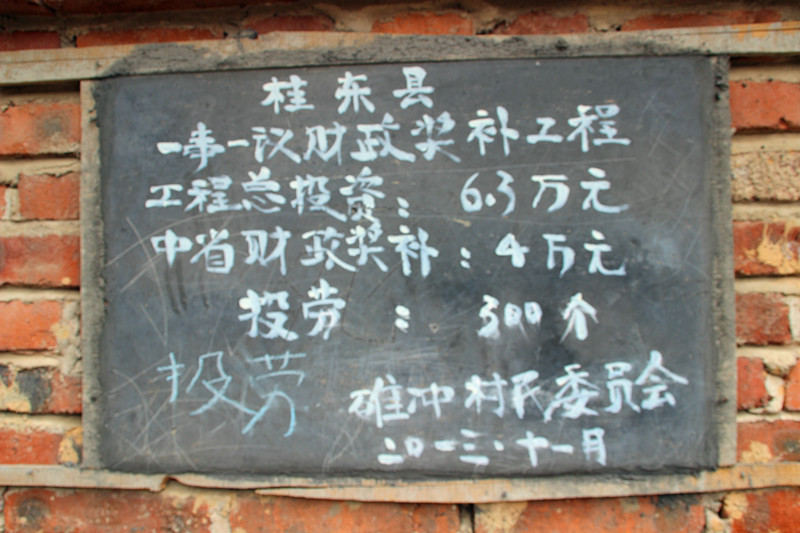 桂东县
一事一议财政奖补工程
工程总投资：6.3万元
中省财政奖补：4万元
投劳：300个
投劳
碓冲村民委员会
二〇一三·十一月